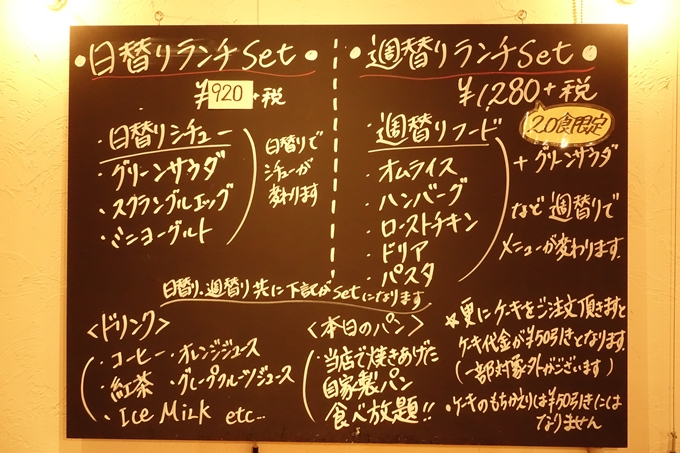 ・日替りランチSet・
¥920+税
・日替りシチュー
・グリーンサラダ
・スクランブルエッグ
・ミニヨーグルト
日替りで
シチューが
変わります
・週替りランチSet・
¥1,280+税
20食限定
・週替りフード
・オムライス
・ハンバーグ
・ローストチキン
・ドリア
・パスタ
+グリーンサラダ
など週替りで
メニューが変わります。
日替り、週替り共に下記がSetになります
<ドリンク>
・コーヒー・オレンジジュース
・紅茶・グレープフルーツジュース
・Ice Milk etc…
<本日のパン>
・当店で焼きあげた
自家製パン
食べ放題!!
★更にケーキをご注文頂きますと
ケーキ代金が¥50引きとなります。
(一部対象外がございます)
・ケーキのもちかえりは¥50引きには
なりません